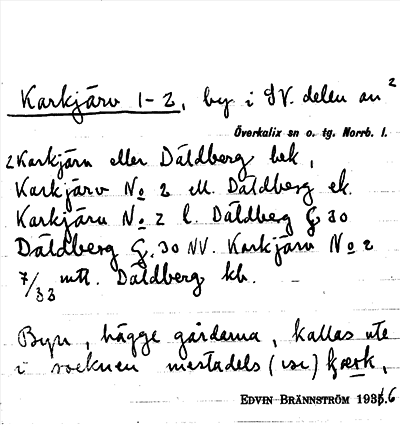 Karkjärv 1-2, by i SV. delen av 2
Överkalix sn o. tg. Norrb. l.
2 Karkjärn eller Dåldberg bek,
Karkjärv No 2 ell. Dåldberg ek.
Karkjärv No 2 l. Dåldberg G 30
Dåldberg G. 30 NV. Karkjärv No 2
7/33 mtl. Dåldberg kb.
Byn, bägge gårdarna, kallas ute
i socknen mestadels (use)
EDVIN BRÄNNSTRÖM 1936.6